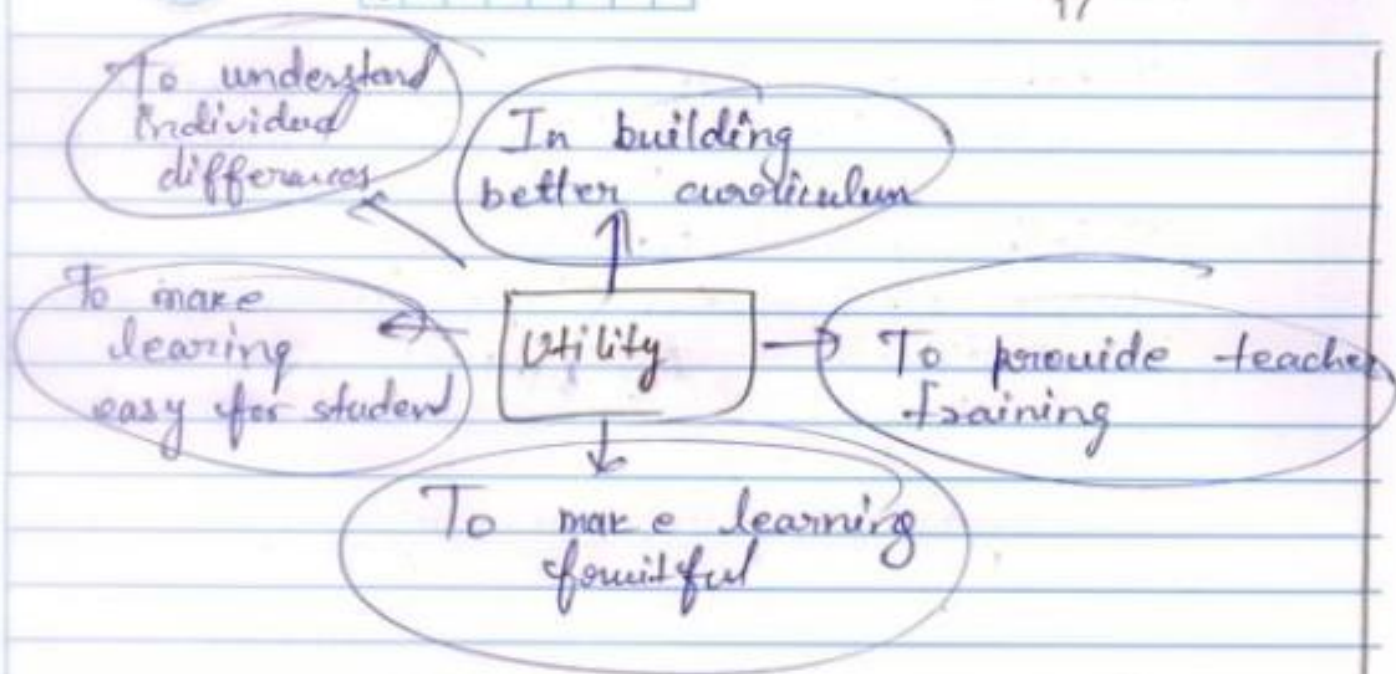 17
To understand
individual
differences
In building
better curriculum
To make
learing
easy for student
Utility
To provide teacher
training
To make learning
fruitful